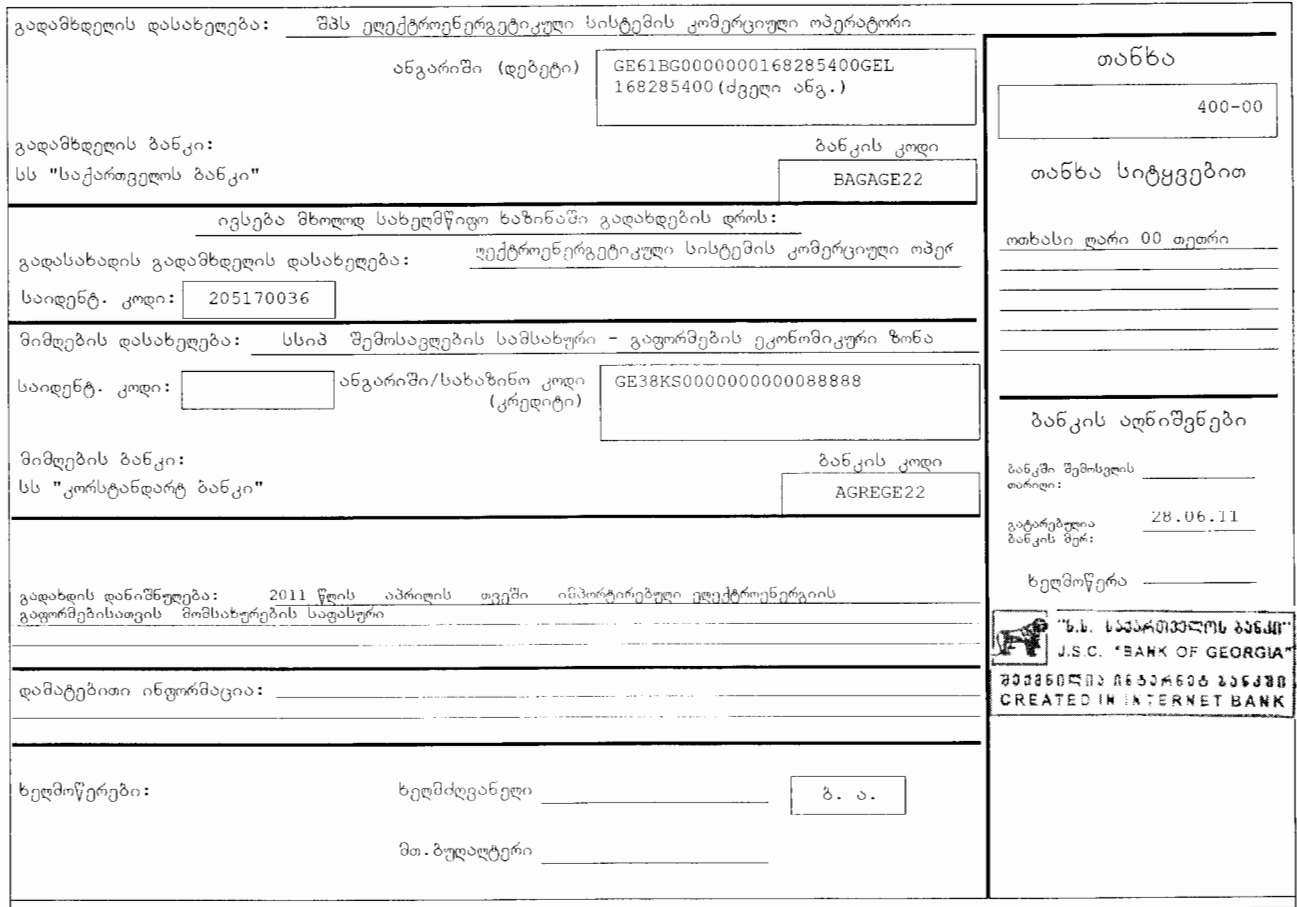 გადამხდელის დასახელება: შპს ელექტროენერგეტიკული სისტემის კომერციული ოპერატორი
ანგარიში (დებეტი) GE61BG0000000168285400GEL
168285400(ძველი ანგ.)
გადამხდელის ბანკი: ბანკის კოდი
სს "საქართველოს ბანკი" BAGAGE22
ივსება მხოლოდ სახელმწიფო ხაზინაში გადახდების დროს:
გადასახადის გადამხდელის დასახელება: ლექტროენერგეტიკული სისტემის კომერციული ოპერ
საიდენტ. კოდი: 205170036
მიმღების დასახელება: სსიპ შემოსავლების სამსახური - გაფორმების ეკონომიკური ზონა
საიდენტ. კოდი: ანგარიში/სახაზინო კოდი GE38KS0000000000088888
(კრედიტი)
მიმღების ბანკი: ბანკის კოდი
სს "კორსტანდარტ ბანკი" AGREGE22
გადახდის დანიშნულება: 2011 წლის აპრილის თვეში იმპორტირებული ელექტროენერგიის
გაფორმებისათვის მომსახურების საფასური
დამატებითი ინფორმაცია:
ხელმოწერები: ხელმძღვანელი ბ. ა.
მთ.ბუღალტერი
თანხა
400-00
თანხა სიტყვებით
ოთხასი ლარი 00 თეთრი
ბანკის აღნიშვნები
ბანკში შემოსვლის
თარიღი:
გატარებულია 28.06.11
ბანკის მერ:
ხელმოწერა
"ს.ს. საქართველოს ბანკი"
J.S.C. "BANK OF GEORGIA"
შექმნილია ინტერნეტ ბანკში
CREATED IN INTERNET BANK